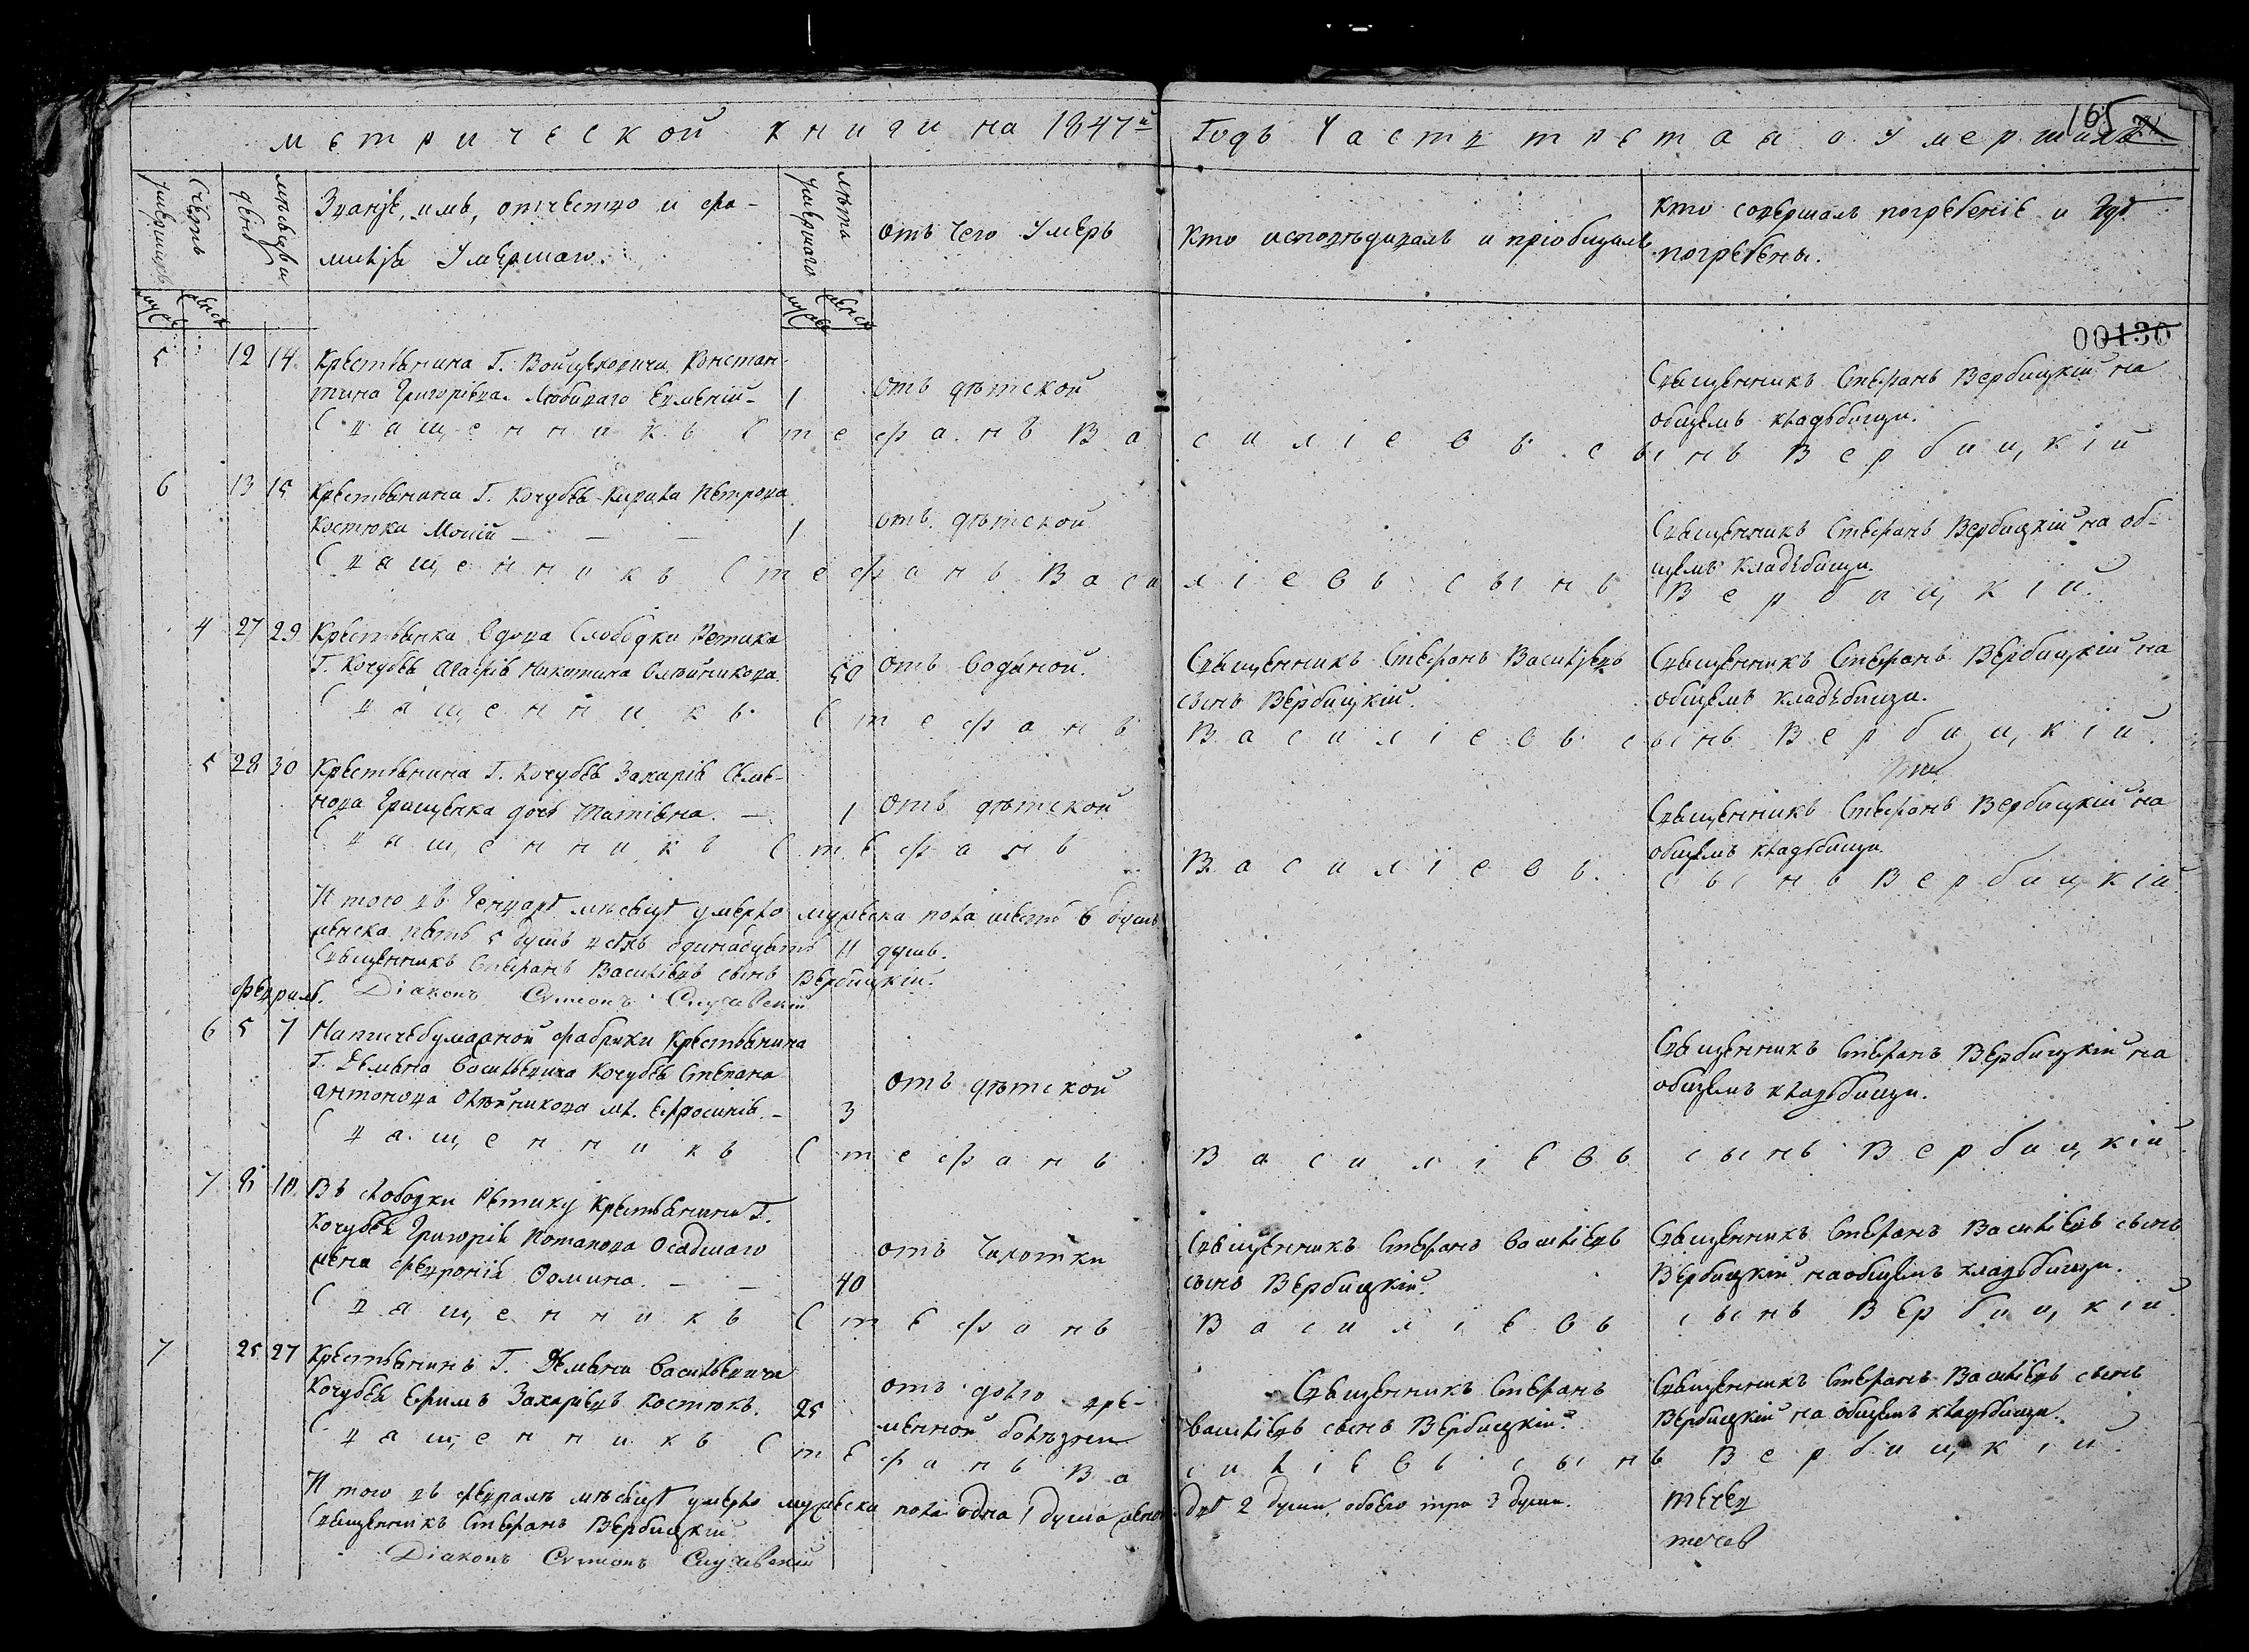 метрической книги на 1847й Годъ Часть третая о Умершихъ
165
Счетъ умершихъ
мужеск
женск
мѣсяцъ и день
Званіе, имя, отчество и фа-
милія Умершаго.
Лѣта умершаго
мужеск
женск
отъ чего Умеръ
Кто исповѣдивалъ и пріобщалъ
Кто совершалъ погребеніе и гдѣ
погребены.
00130
5 12 14 Крестьянина Г. Войцеховича Констан-
тина Григоріева Любицаго Евменій - 1 отъ дѣтской
Священникъ Стефанъ Вербицкій на
общемъ кладьбищи.
Священникъ Стефанъ Василіевъ сынъ Вербицкій
6 13 15 Крестьянина Г. Кочубея Кирила Петрова
Костюка Мокій — — — 1 отъ дѣтской
Священникъ Стефанъ Вербицкій на об-
щемъ кладьбищи.
Священникъ Стефанъ Василіевъ сынъ Вербицкій.
4 27 29 Крестьянка вдова Слободки Ретика
Г. Кочубея Агафія Никитина Олейникова. 50 отъ водяной.
Священникъ Стефанъ Василіевъ
сынъ Вербицкій.
Священникъ Стефанъ Вербицкій на
общемъ кладьбищи.
Священникъ Стефанъ Василіевъ сынъ Вербицкій.
5 28 30 Крестьянина Г. Кочубея Захарія Семе-
нова Грищенка дочь Татіяна. — 1 отъ дѣтской
Священникъ Стефанъ Вербицкій на
общемъ кладьбищи.
Священникъ Стефанъ Василіевъ сынъ Вербицкій.
Итого въ Генварѣ мѣсяцѣ умерло мужеска пола шесть 6 душъ
женска пять 5 душъ всѣхъ одинадцать 11 душъ.
Священникъ Стефанъ Василіевъ сынъ Вербицкій.
Діаконъ Сѵмеонъ Случевскій
Февраль.
6 5 7 Написчебумажной фабрики Крестьянина
Г. Демяна Васильевича Кочубея Степана
Антонова Олейникова мл. Ефросинія. - 3 отъ дѣтской
Священникъ Стефанъ Вербицкій на
общемъ кладьбищи.
Священникъ Стефанъ Василіевъ сынъ Вербицкій
7 8 10 Въ слободки Ретику Крестьянина Г.
Кочубея Григорія Потапова Осадшаго
жена Февронія Фомина. — — 40 отъ Чахотки
Священникъ Стефанъ Василіевъ
сынъ Вербицкій.
Священникъ Стефанъ Василіевъ сынъ
Вербицкій на общемъ кладьбищи.
Священникъ Стефанъ Василіевъ сынъ Вербицкій.
7 25 27 Крестьянинъ Г. Демяна Васильевича
Кочубея Ефимъ Захаріевъ Костюкъ. 25 отъ долго вре-
менной болѣзни
Священникъ Стефанъ
Василіевъ сынъ Вербицкій.
Священникъ Стефанъ Василіевъ сынъ
Вербицкій на общемъ кладьбищи.
Священникъ Стефанъ Василіевъ сынъ Вербицкій.
Итого въ Февралѣ мѣсяцѣ умерло мужеска пола одна 1 душа женск. двѣ 2 души, обоего три 3 души.
Священникъ Стефанъ Вербицкій
Діаконъ Сѵмеонъ Случевскій